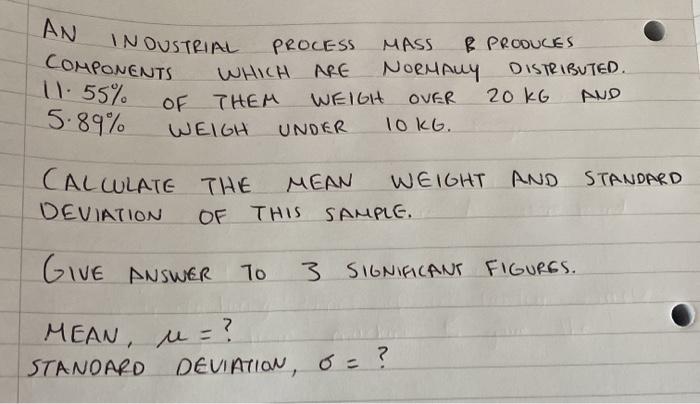 AN INDUSTRIAL PROCESS MASS PRODUCES
COMPONENTS WHICH ARE NORMALLY DISTRIBUTED.
11.55% OF THEM WEIGH OVER 20 KG AND
5.89% WEIGH UNDER 10 KG.
CALCULATE THE MEAN WEIGHT AND STANDARD
DEVIATION OF THIS SAMPLE.
GIVE ANSWER TO 3 SIGNIFICANT FIGURES.
MEAN, μ = ?
STANDARD DEVIATION, σ = ?